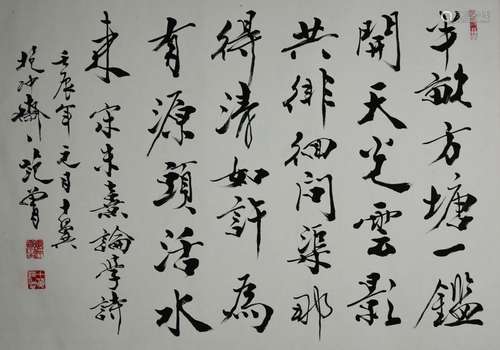 半畝方塘一鑑
開天光雲影
共徘徊問渠那
得清如許為
有源頭活水
来 宋朱熹論學詩
壬辰年元月十翼
抱冲齋范曾